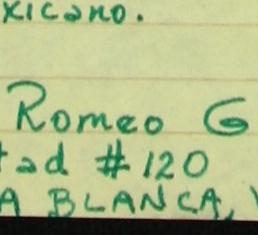 xicano.
Romeo G
tad #120
A BLANCA, V